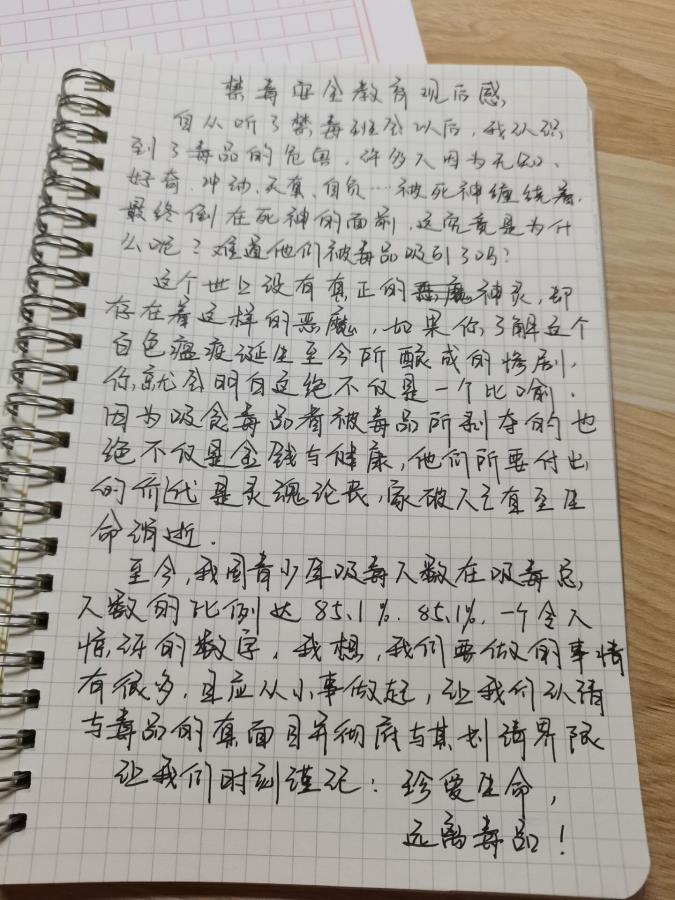 禁毒安全教育观后感
自从听了禁毒班会以后,我认识
到了毒品的危害,许多人因为无知、
好奇、冲动、天真、自负…被死神缠绕着,
最终倒在死神的面前,这究竟是为什
么呢?难道他们被毒品吸引了吗?
这个世上没有真正的恶魔神灵,却
存在着这样的恶魔,如果你了解这个
白色瘟疫诞生至今所酿成的惨剧,
你就会明白这绝不仅是一个比喻.
因为吸食毒品者被毒品所剥夺的也
绝不仅是金钱与健康,他们所要付出
的价代是灵魂论丧,家破人亡直至生
命消逝.
至今,我国青少年吸毒人数在吸毒总,
人数的比例达85.1%.85.1%,一个令人
惊讶的数字,我想,我们要做的事情
有很多,且应从小事做起,让我们认清
与毒品的真面目并彻底与其划清界限
让我们时刻谨记:珍爱生命,
远离毒品!